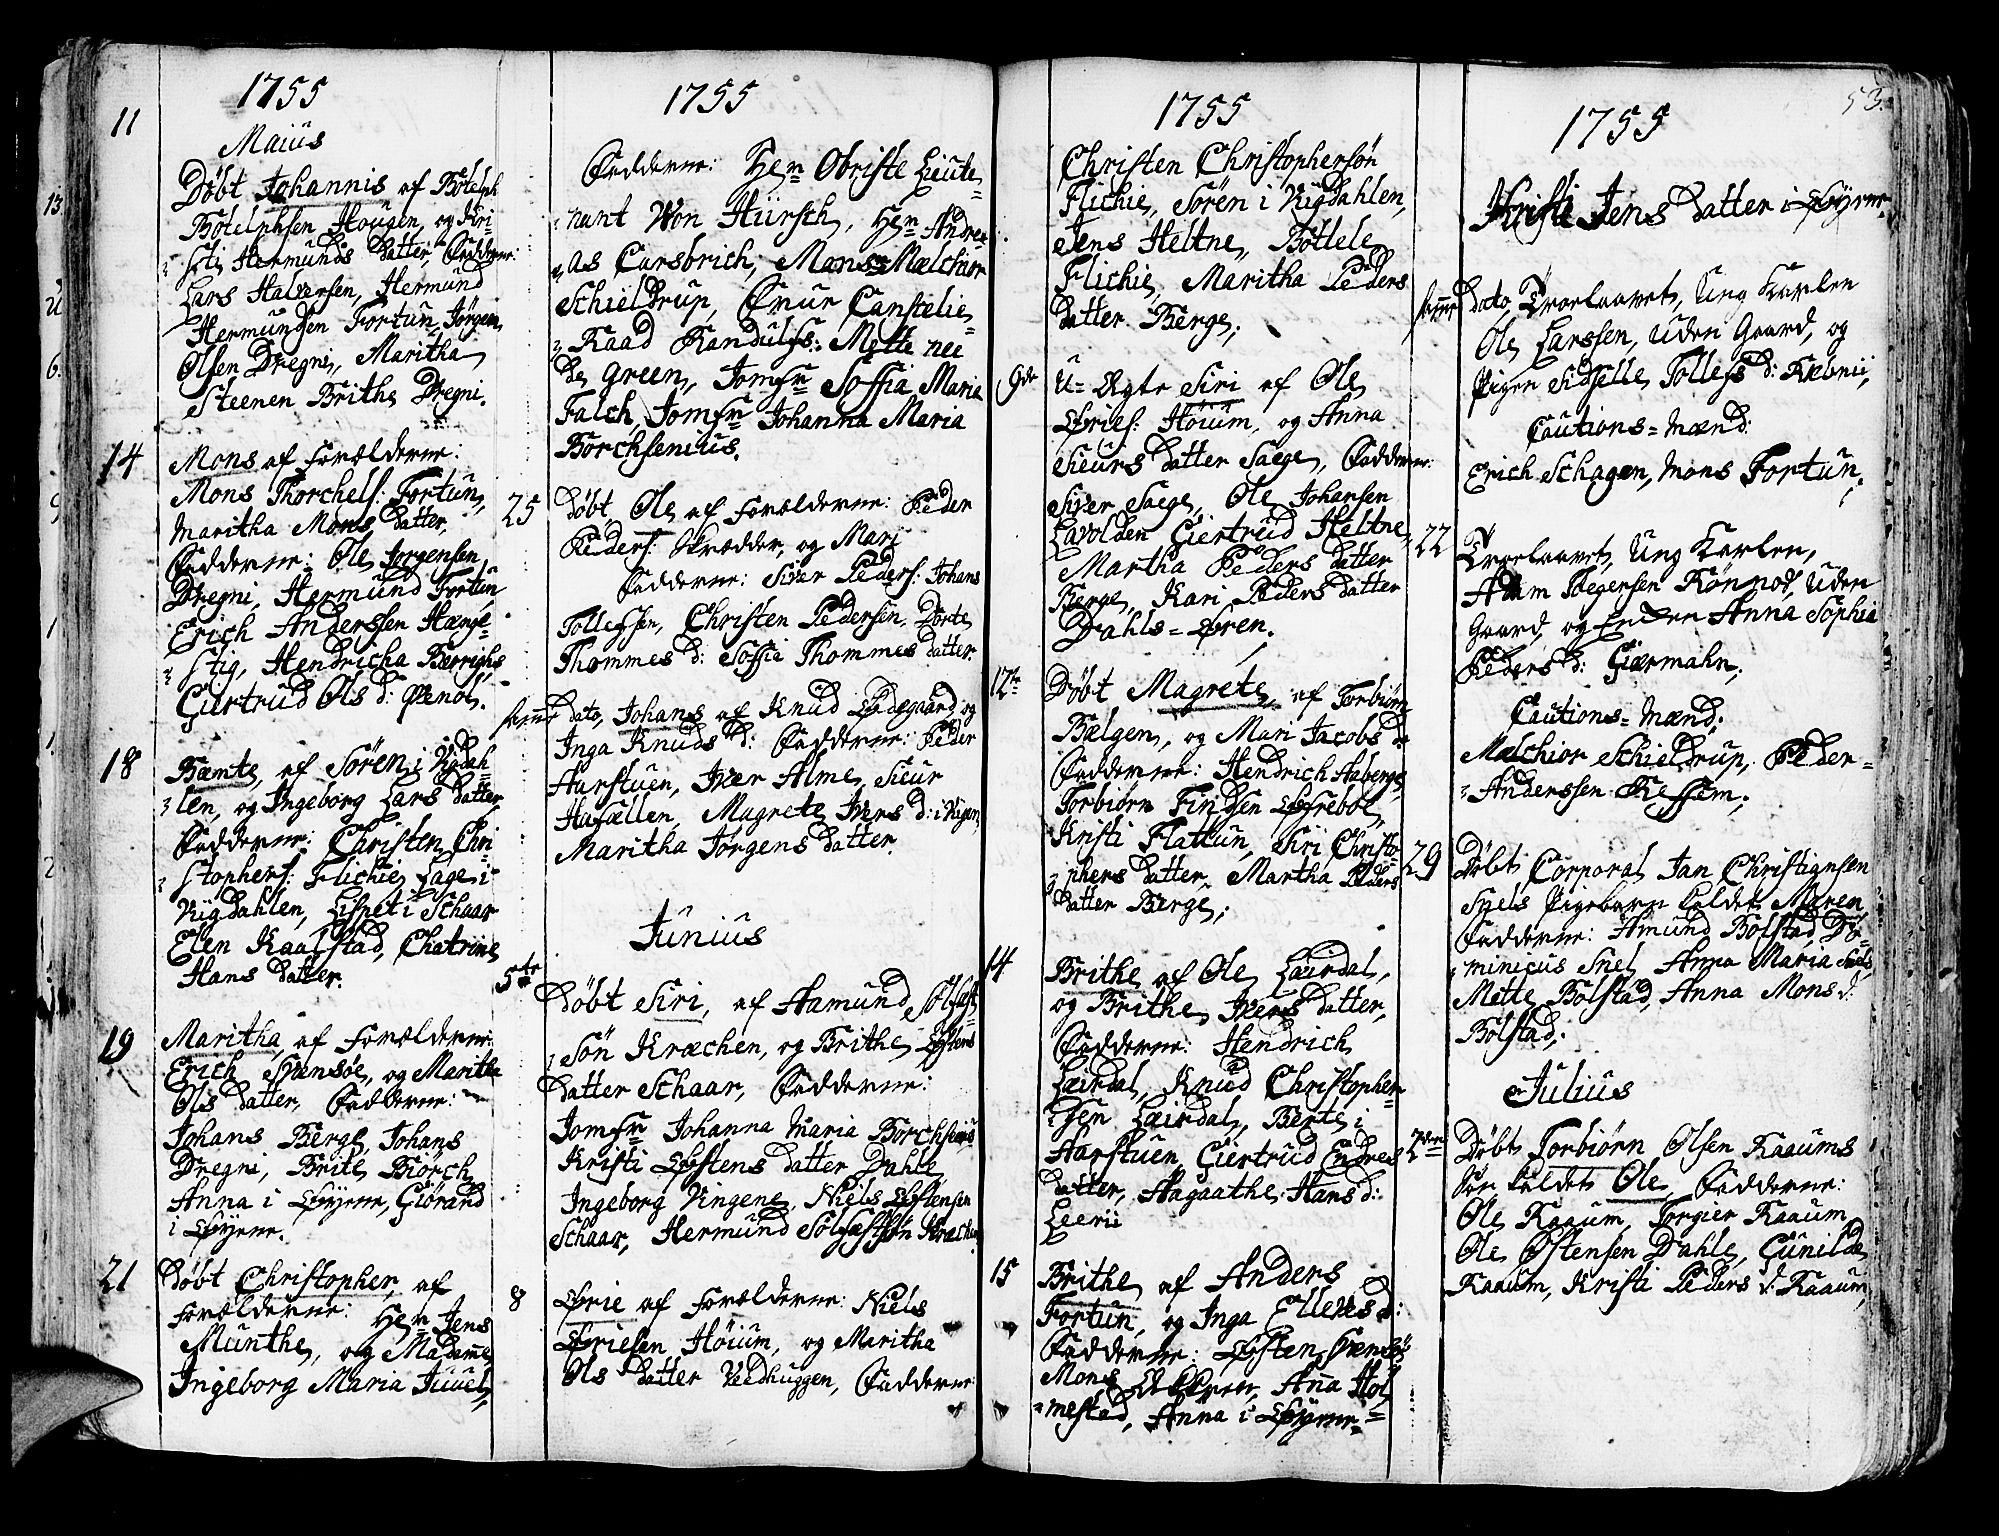 1755
Maius
11
Døbt Johannis af Botelph
Botelphsen Hougen, og Kri-
sti Hermunds datter, Fadderne:
Lars Halversen, Hermund
Hermundsen Fortun, Jørgen
Olsen Dregni, Maritha
Steenen Brithe Dregni.
14
Mons af Forældrene:
Mons Thorchels: Fortun,
Maritha Mons datter,
Fadderne: Ole Jørgensen
Dregni, Hermund Fortun
Erich Anderssen Hænge-
stig, Hendricha Berrighs,
Giertrud Ols d:
18
Bente, af Søren i Vigdah-
len, og Ingeborg Lars datter,
Fadderne: Christen Chri-
stophers: Flichie, Lage i
Vigdahlen, Lispet i Schaar
Elen Kaalstad, Chatrine
Hans datter.
19
Maritha, af Forældrene
Erich Svensøe, og Maritha
Ols datter, Fadderne:
Johans Berge, Johans
Dregni, Brite Biørch
Anna i Øyene, Giørand
i Øyene.
21
Døbt Christopher, af
Forældrene: Her Jens
Munthe, og Madame
Ingeborg Maria Juuel,
1755
Fadderne: Her Obriste Lieute-
nant Von Hürsch, Her Andre-
as Carsbrich, Mans Melchior
Schieldrup, Frue Cancelie-
Raad Randulfs: Mette nee
de Green, Jomfr Soffia Maria
Falch, Jomfr Johanna Maria
Borchsenius.
25
Døbt, Ole af Forældrene: Peder
Peders: Skrædder, og Mari
Fadderne: Siver Peders: Johans
Tollefsen, Christen Pedersen, Dorte
Thommes d: Soffia Thommes datter.
samme dato, Johans af Knud Ødegaard og
Inga Knuds d: Fadderne: Peder
Harstuen, Iver Alme, Sieur
Hafællen, Magrete Ivers d: i Vigen,
Maritha Jørgens datter.
Junius
5te
Døbt Siri, af Aamund Solfæst-
søn Kræchen, og Brithe Østens
datter Schaar, Fadderne:
Jomfr Johanna Maria Borchsenius
Kristi Østens datter Dahle
Ingeborg Vingene, Niels Østensen
Schaar, Hermund Solfæstsøn Kræchen
8
Ørie af Forældrene: Niels
Ørisen Høium, og Maritha
Ols datter Vedhuggen, Fadderne
1755
Christen Christophersøn
Flichie, Søren i Vigdahlen,
Jens Heltne, Bottele
Flichie, Maritha Peders
datter Berge,
9de
U-Ægte Siri af Ole
Høium, og Anna
Sieurs datter Saege, Fadderne:
Siver Saege, Ole Johansen
Lavolden Giertrud Heltne,
Martha Peders datter
Berge, Kari Peders datter
Dahls-Øren.
12te
Døbt Magrete, af Torbiørn
Bælgen, og Mari Jacobs d
Fadderne: Hendrich Aaberge
Torbiørn Findsen
Kristi Flattun, Siri Christo-
phers datter, Martha Peders
datter Berge,
14
Brithe af Ole Lærdal,
og Brithe Ivers datter,
Fadderne: Hendrich
Lærdal, Knud Christopher-
sen Lærdal, Bente i
Harstuen, Giertrud Endres
datter, Aagaathe Hans d:
Leerii
15
Brithe af Anders
Fortun, og Inga Ellevs d:
Fadderne: Østen Svensøe
Mons Anna Hol-
mestad, Anna i Øyene-
1755
53.
Kristi Jens datter i Øyene.
samme dato, Troelovet, Ung Karlen
Ole Larssen, Uden Gaard, og
Pigen Sidselle Tollefs d: Ræbnii,
Cautions-Mænd:
Erich Schagen, Mons Fortun,
22
Troelovet, Ung Karlen,
Adam Bøgersen Rønnod, Uden
Gaard, og Enchen Anna Sophia
Peders d: Giærmahn,
Cautions-Mænd:
Melchior Schieldrup, Peder-
Anderssen Refsem,
29
Døbt Corporal Jan Christiansen
Snels Pigebarn kaldet Maren
Fadderne: Amund Bolstad, Do-
minicus Snel Anna Maria Snels
Mette Bolstad, Anna Mons d:
Bolstad,
Julius
2den
Døbt Torbiørn Olsen Kaaums
Søn kaldet Ole, Fadderne:
Ole Kaaum, Torgier Kaaum
Ole Østensen Dahle, Gunilde
Kaaum, Kristi Peders d: Kaaum,